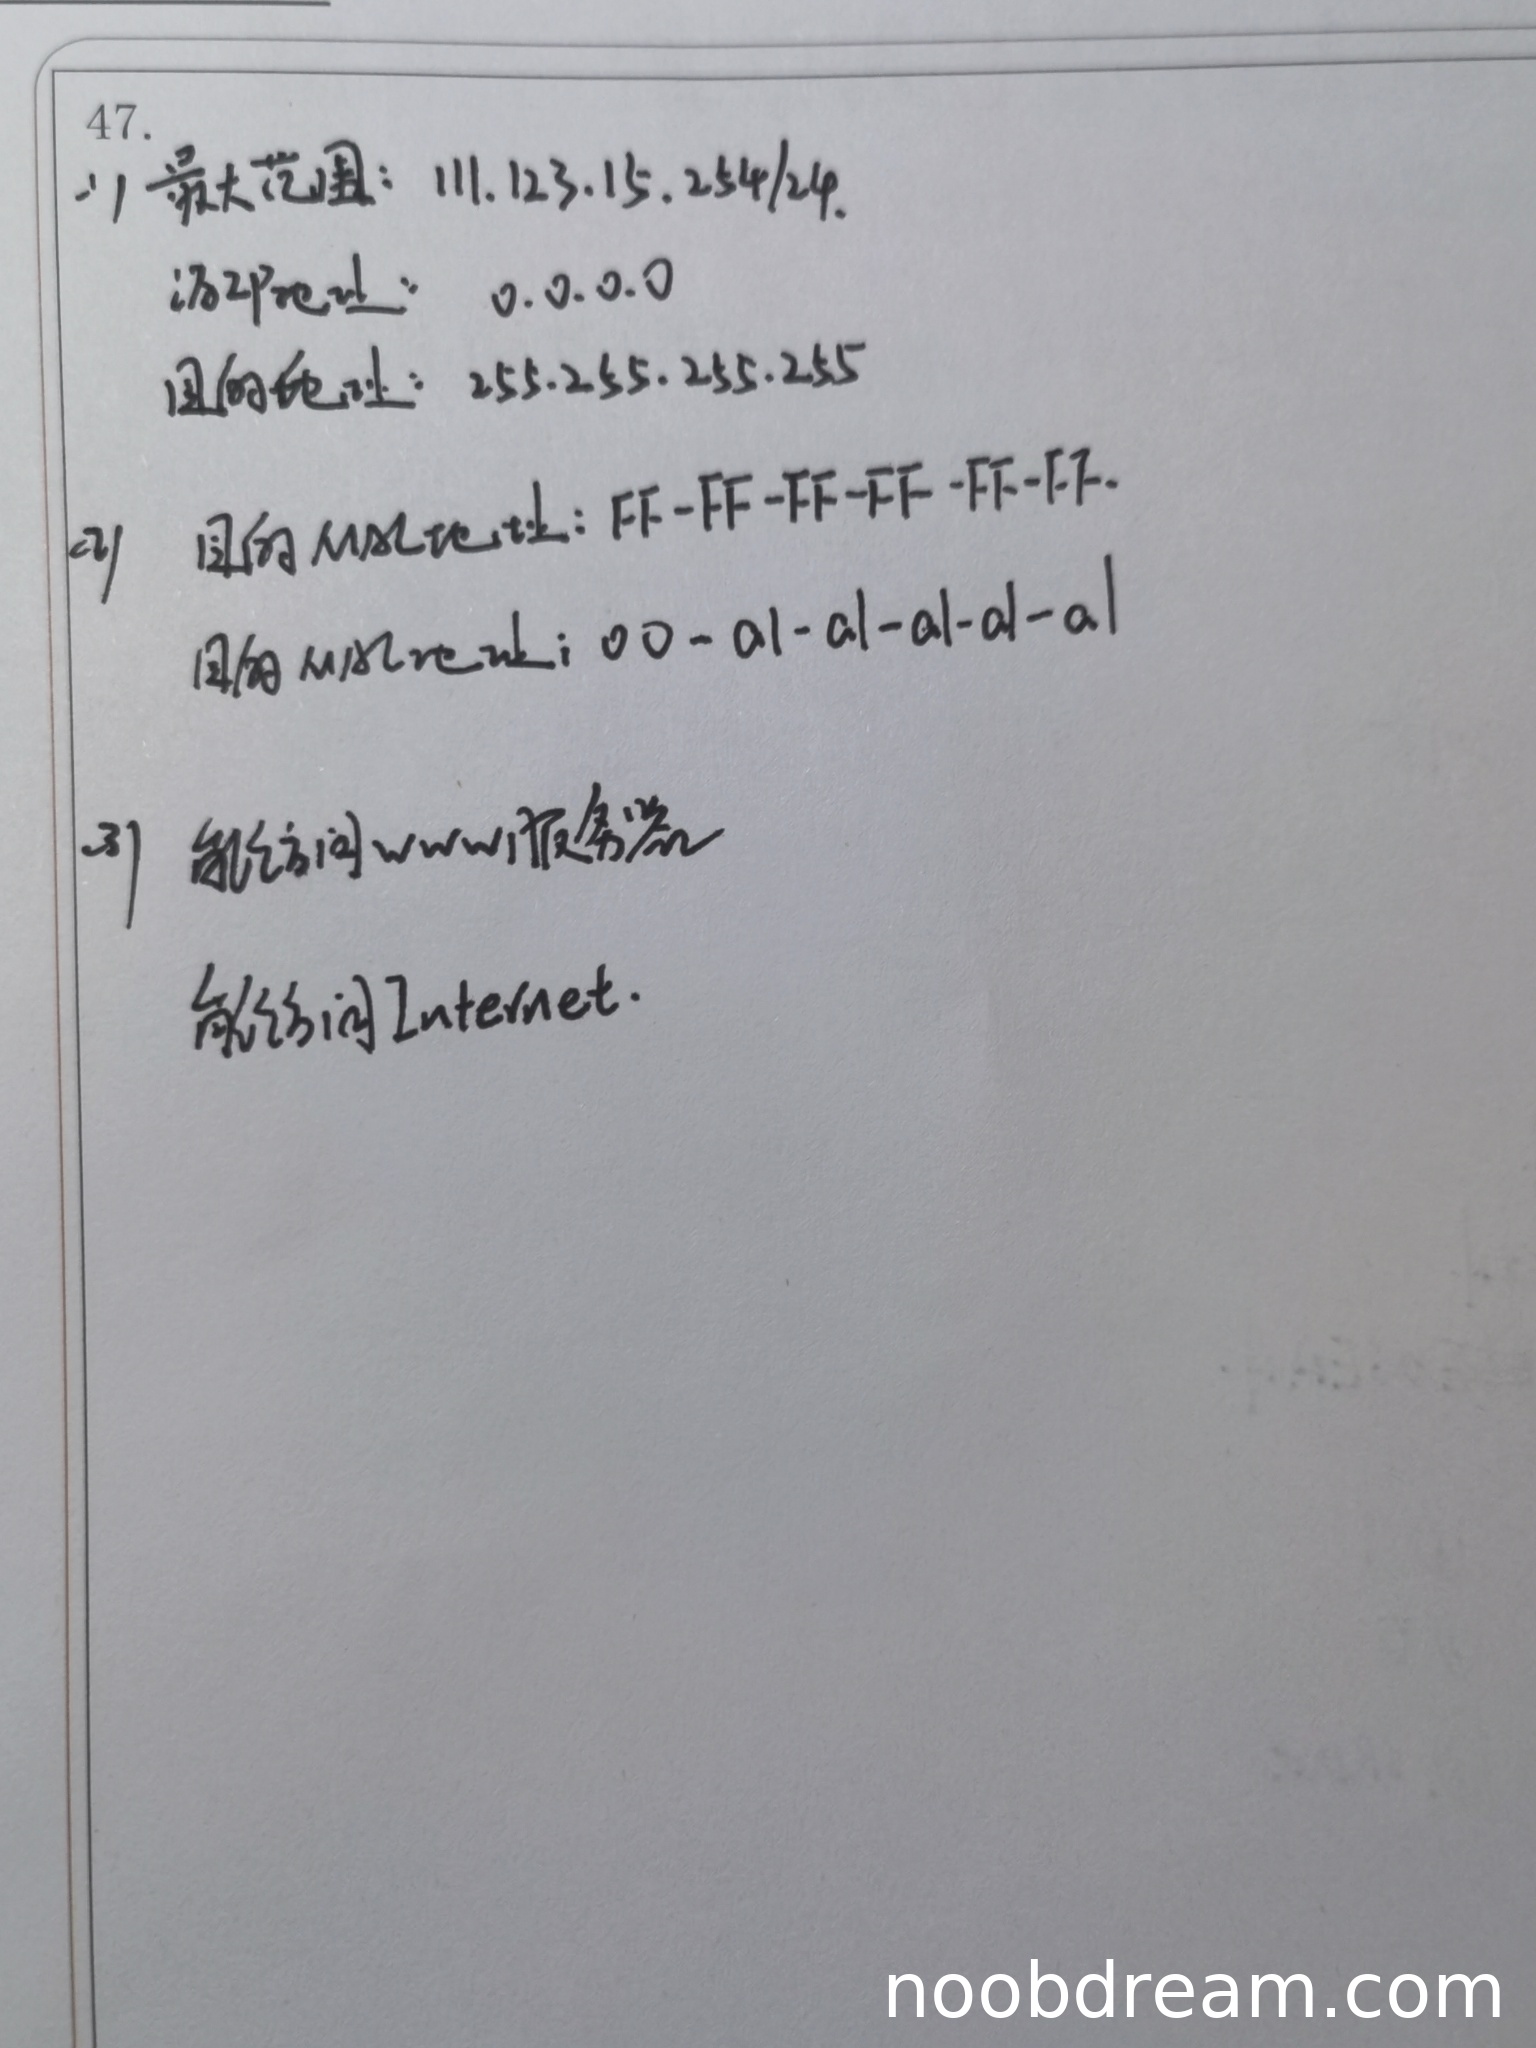 47.
(1) 最大范围: 111.123.15.254/24.
源IP地址: 0.0.0.0
目的地址: 255.255.255.255
(2) 目的MAC地址: FF-FF-FF-FF-FF-FF.
目的MAC地址: 00-a1-a1-a1-a1-a1
(3) 能访问WWW服务器
能访问Internet.
noobdream.com